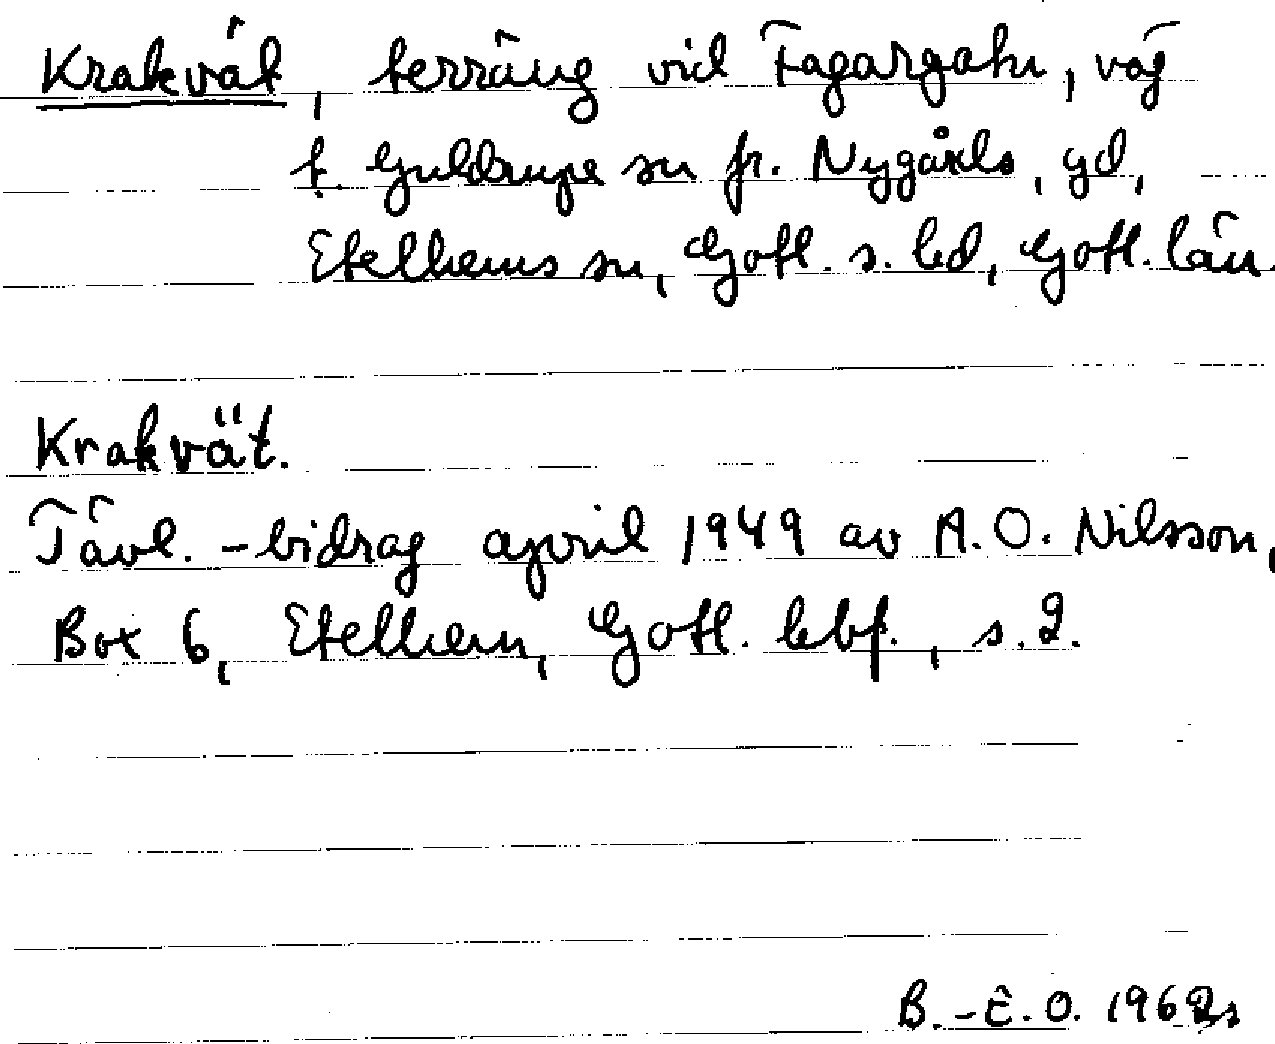 Krakvät, terräng vid Fagargahn, väg
t. Guldrupe sn fr. Nygårds, gd,
Etelhems sn, Gotl. s. hd, Gotl. län.
Krakvät.
Tävl.-bidrag april 1949 av A.O. Nilsson,
Box 6, Etelhem, Gotl. hbf., s. 2.
B.-E.O. 1962